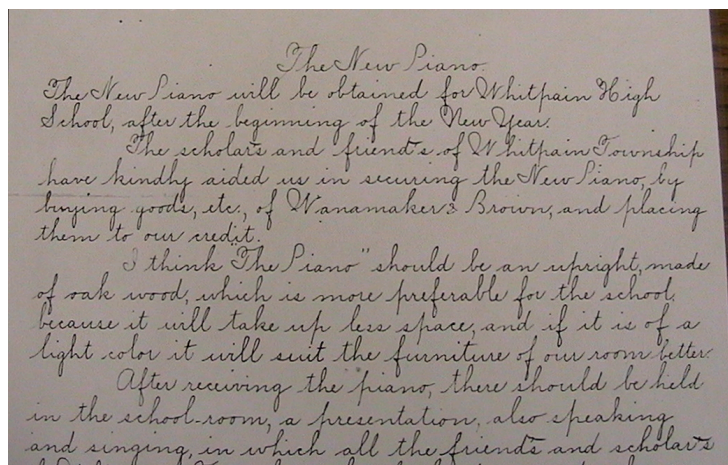 The New Piano.
The New Piano will be obtained for Whitpain High
School, after the beginning of the New Year.
The scholars and friends of Whitpain Township
have kindly aided us in securing the New Piano, by
buying goods, etc., of Wanamaker & Brown, and placing
them to our credit.
I think "The Piano" should be an upright, made
of oak wood, which is more preferable for the school,
because it will take up less space, and if it is of a
light color it will suit the furniture of our room better.
After receiving the piano, there should be held
in the school-room, a presentation, also speaking
and singing, in which all the friends and scholars